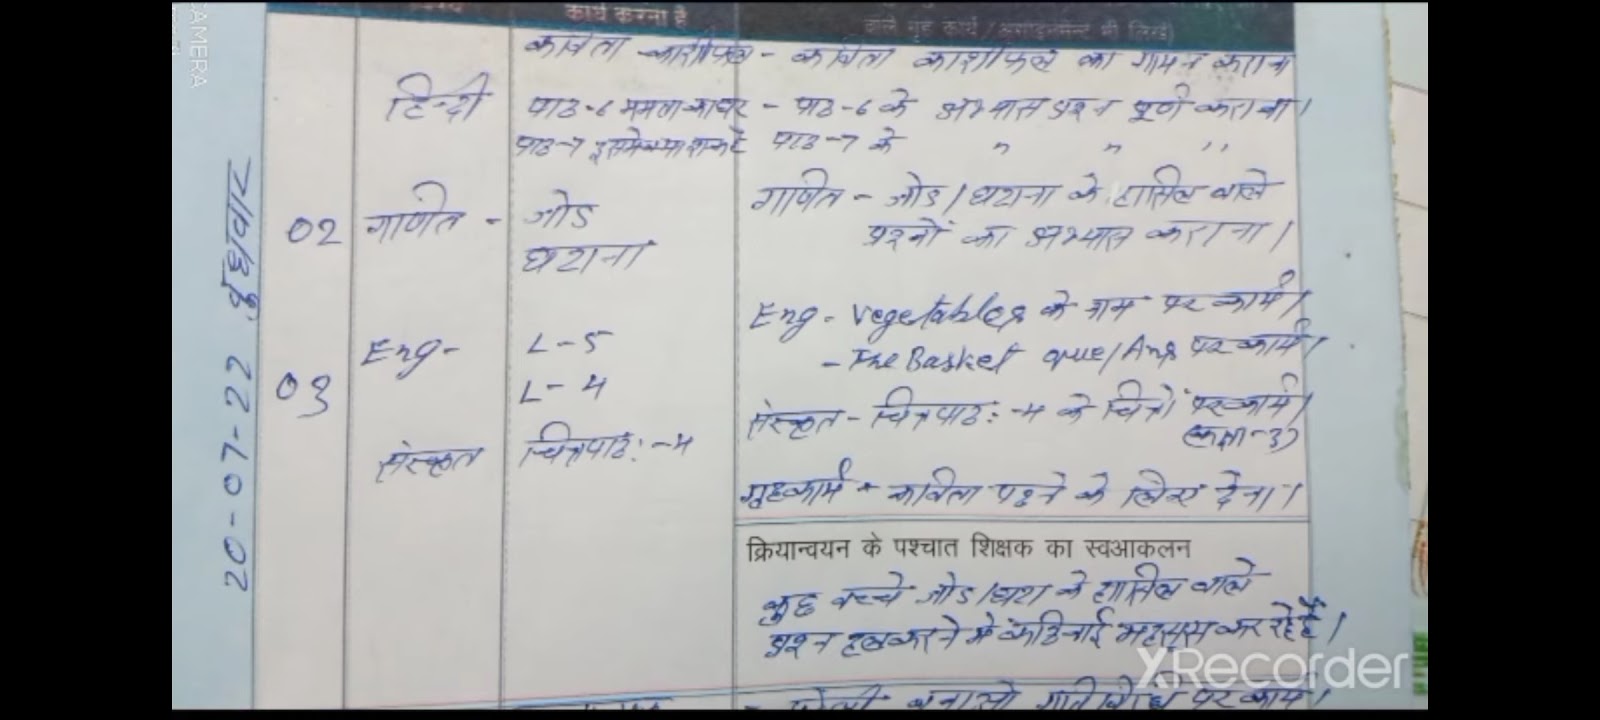 कार्य करना है
वाले गृह कार्य / असाइनमेन्ट भी लिखें)
कविता - काशीफल - कविता काशीफल का गायन कराना
हिन्दी पाठ-6 ममता का घर - पाठ-6 के अभ्यास प्रश्न पूर्ण कराना।
पाठ-7 पाठ-7 के " " "
02 गणित - जोड गणित - जोड / घटाना के हासिल वाले
घटाना प्रश्नों का अभ्यास कराना।
20-07-22 बुधवार
Eng- L-5 Eng - Vegetables के नाम पर कार्य।
03 L-4 - The Basket que/Ans पर कार्य।
संस्कृत चित्रपाठ: -4 संस्कृत - चित्रपाठ: -4 के चित्रों पर कार्य।
(कक्षा-3)
गृहकार्य - कविता पढने के लिए देना।
क्रियान्वयन के पश्चात शिक्षक का स्वआकलन
कुछ बच्चे जोड/घटा के हासिल वाले
प्रश्न हल करने मे कठिनाई महसूस कर रहे है।
बनाओ गतिविधि पर कार्य।
CAMERA
XRecorder